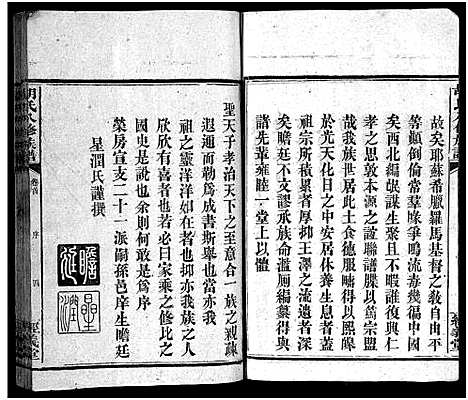 故矣耶蘇希臘羅馬基督之教自由平
等顛倒倫常當羣喙爭鳴流毒幾徧中國
矣西北編氓謀生聚且不暇寧責以復興仁
孝之思敦本源之誼聯譜牒以篤宗盟
哉我族世居此土食德服疇得以熙皞
於光天化日之中安居休養生息者蓋
祖宗所積累者厚抑王澤之流遠者深
瞻廷不文謬承族命濫厠編纂得與
諸先輩雍睦一堂上以體
聖天子孝治天下之至意合一族之親疎
遐邇而勒為成書斯舉也寧惟我
祖之靈洋洋如在者也抑亦我族之人
欣欣有喜者也若必曰家乘之修比之
國史是誣也余則何敢是為序
榮房宣支二十一派嗣孫邑庠生瞻廷
星潤氏謹撰
胡氏八修族譜
卷首
序
四
經義堂